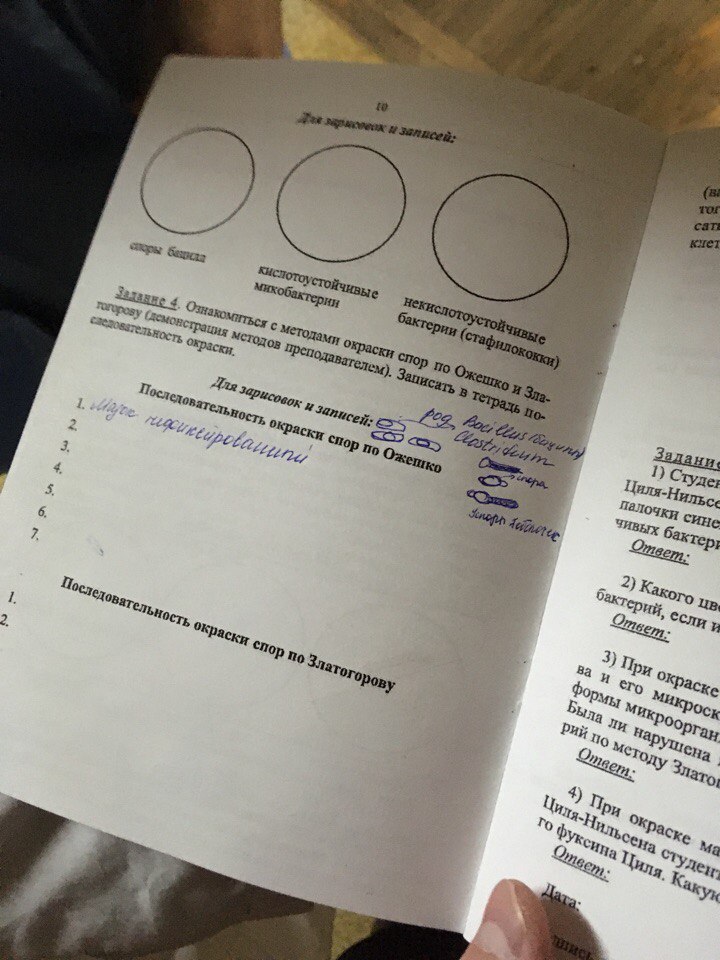 10
Для зарисовок и записей:
споры бацилл
кислотоустойчивые
микобактерии
некислотоустойчивые
бактерии (стафилококки)
Задание 4. Ознакомиться с методами окраски спор по Ожешко и Зла-
тогорову (демонстрация методов преподавателем). Записать в тетрадь по-
следовательность окраски.
Для зарисовок и записей:
род Bacillus
Clostridium
спора
Последовательность окраски спор по Ожешко
1. Мазок нефиксированный
2.
3.
4.
5.
6.
7.
споры
Последовательность окраски спор по Златогорову
1.
2.
(в
тог
сать
клет
Задание
1) Студен
Циля-Нильсе
палочки сине
чивых бактери
Ответ:
2) Какого цве
бактерий, если и
Ответ:
3) При окраске
ва и его микроск
формы микроорган
Была ли нарушена
рий по методу Златог
Ответ:
4) При окраске ма
Циля-Нильсена студент
го фуксина Циля. Какую
Ответ:
Дата: